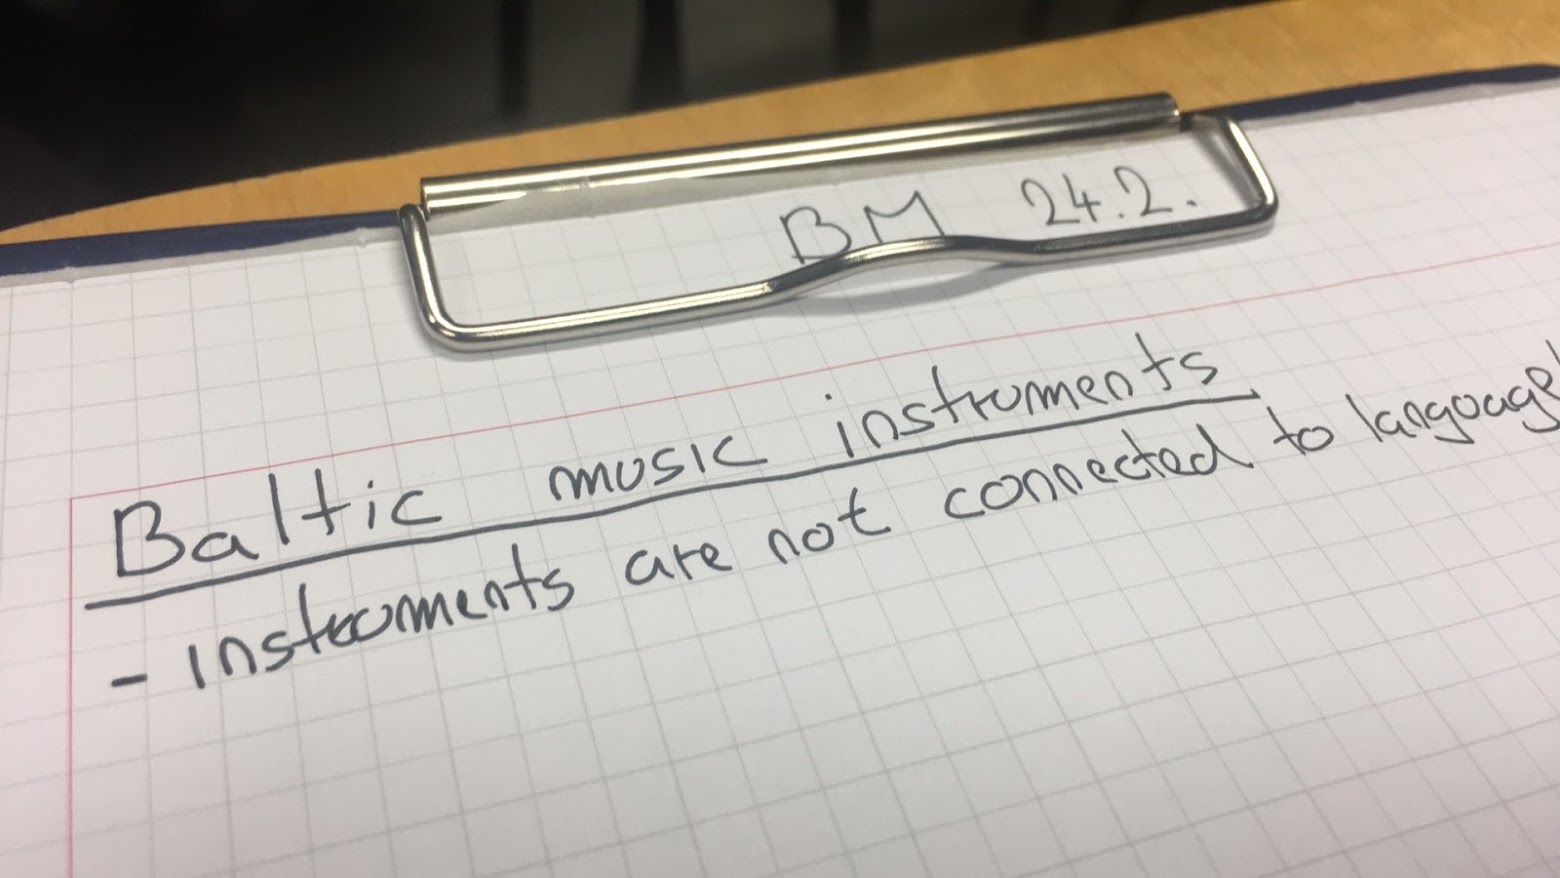 BM 24.2.
Baltic music instruments
- instruments are not connected to language!